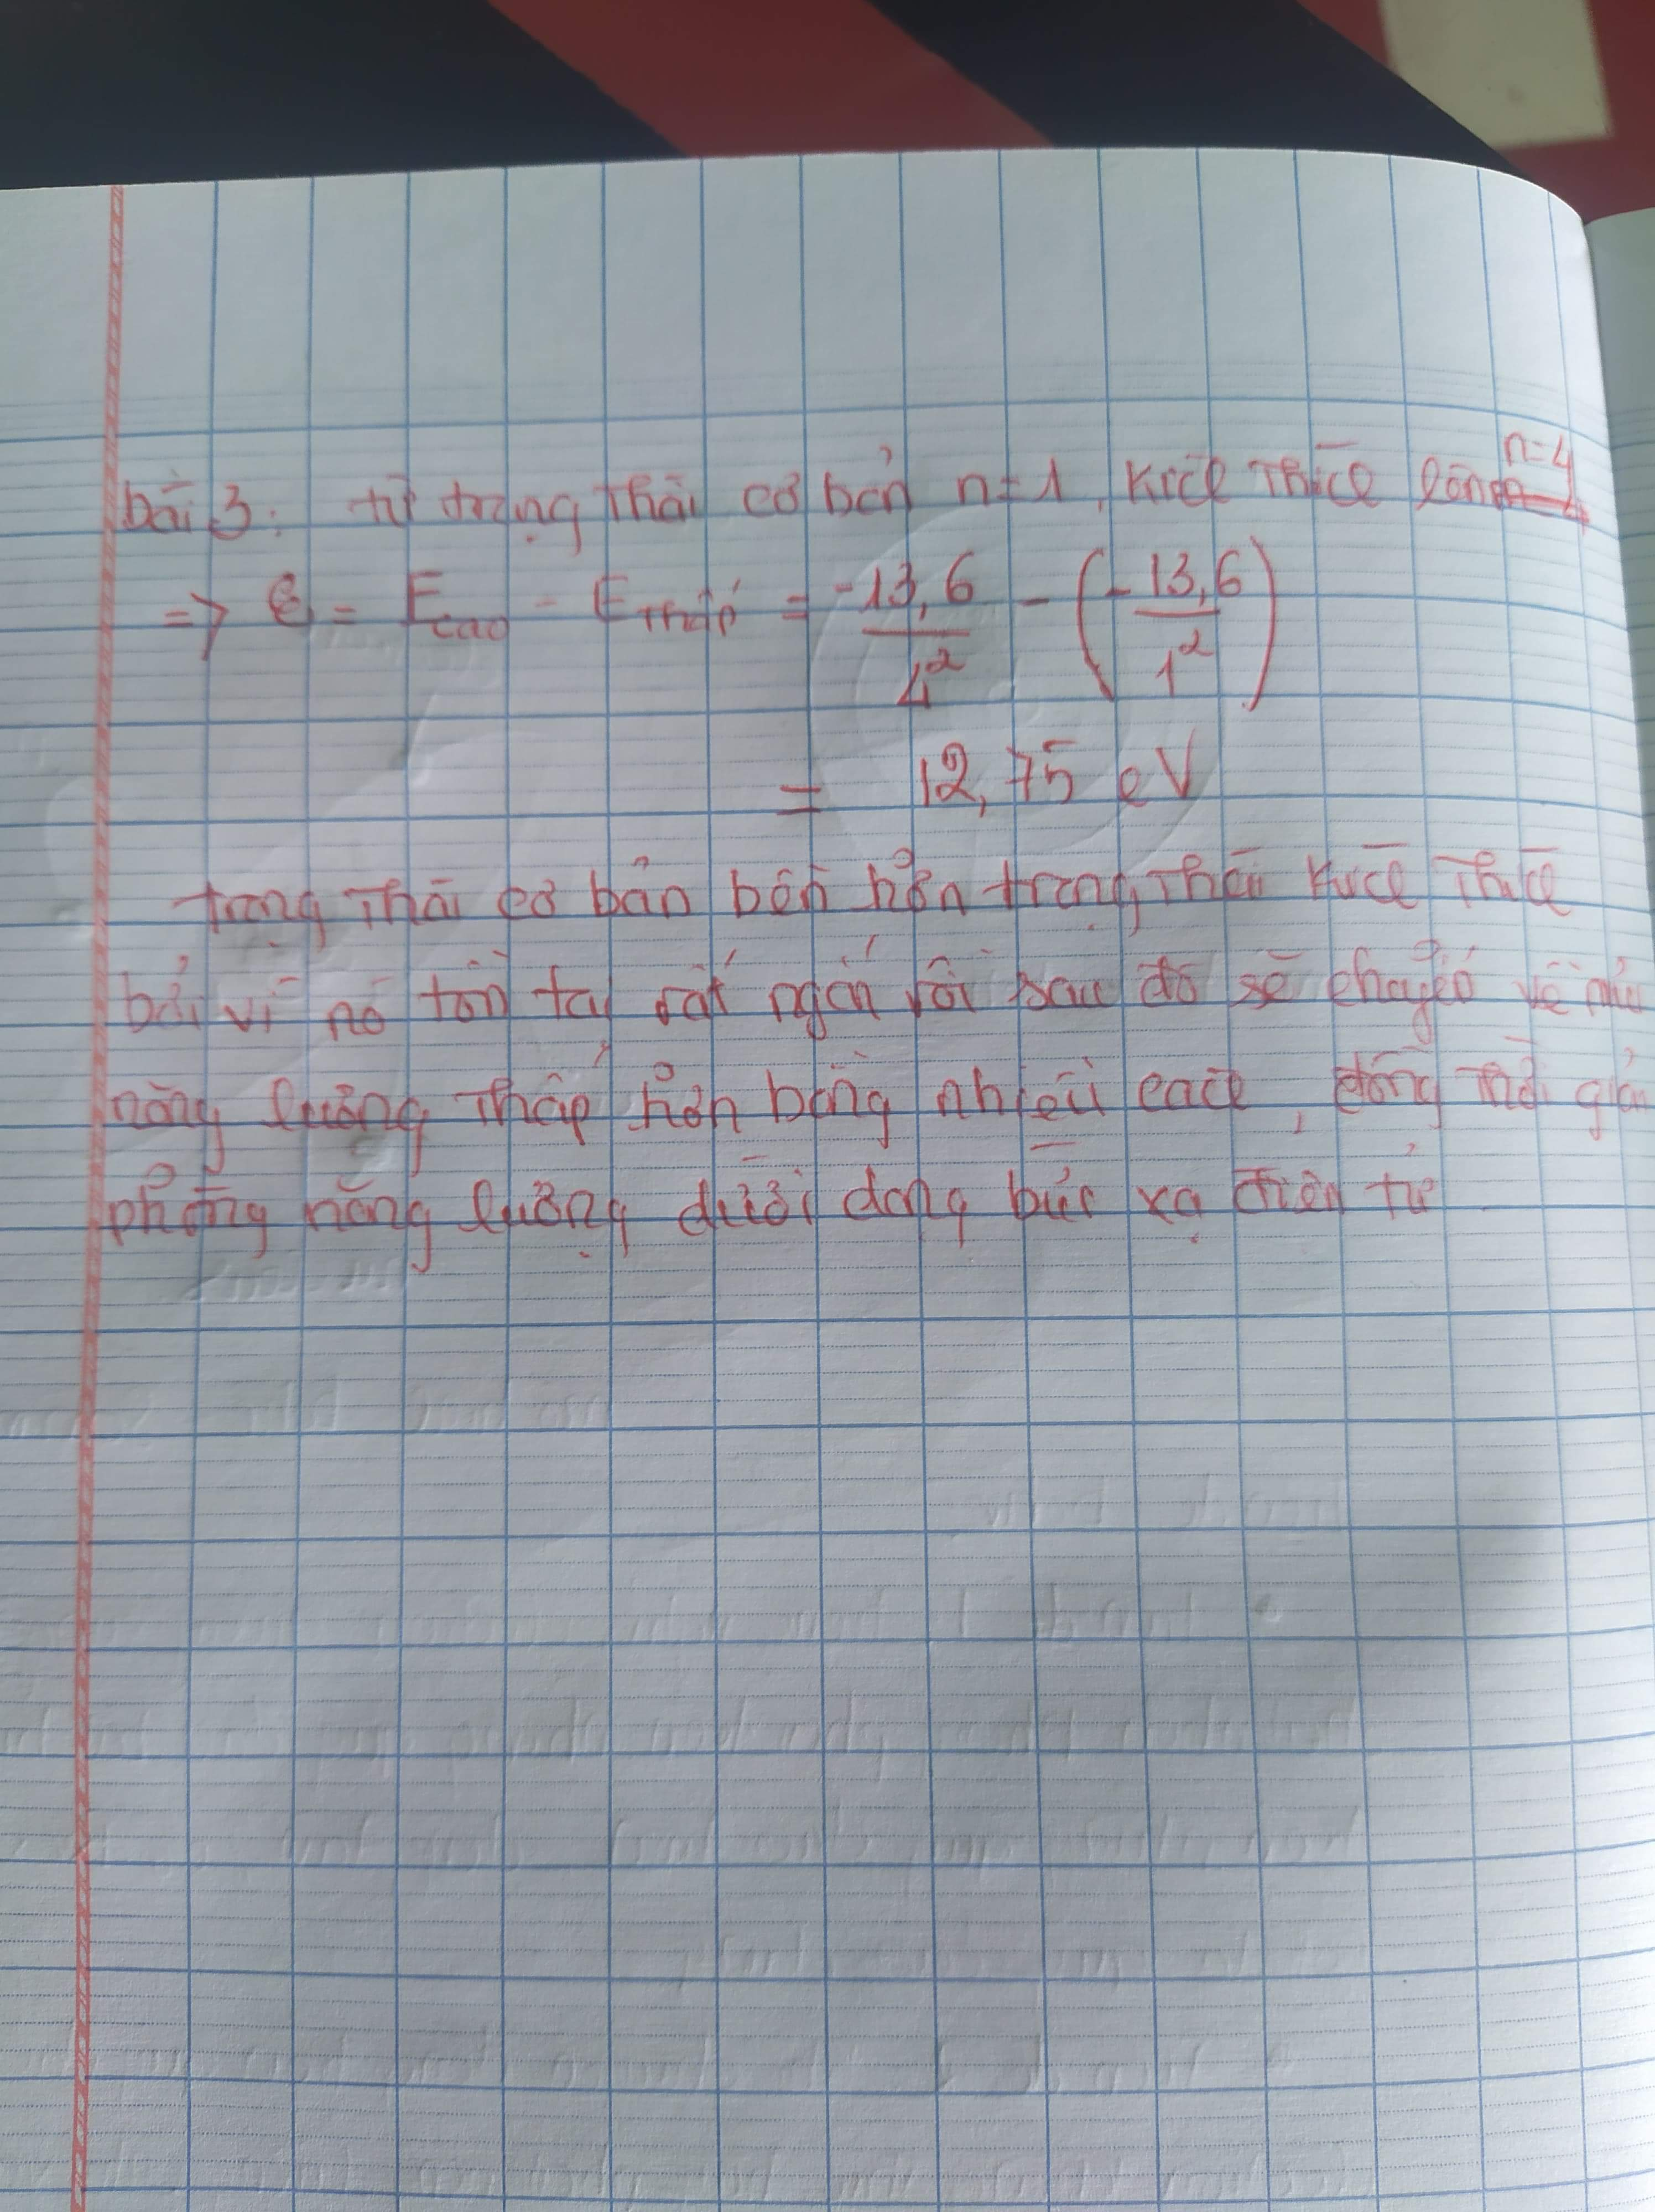 bài 3: từ trạng thái cơ bản n=1, kích thích lên n=4
=> ε = E cao - E thấp = -13,6/4² - (-13,6/1²)
= 12,75 eV
trạng thái cơ bản bền hơn trạng thái kích thích
bởi vì nó tồn tại rất ngắn rồi sau đó sẽ chuyển về mức
năng lượng thấp hơn bằng nhiều cách, đồng thời giải
phóng năng lượng dưới dạng bức xạ điện từ